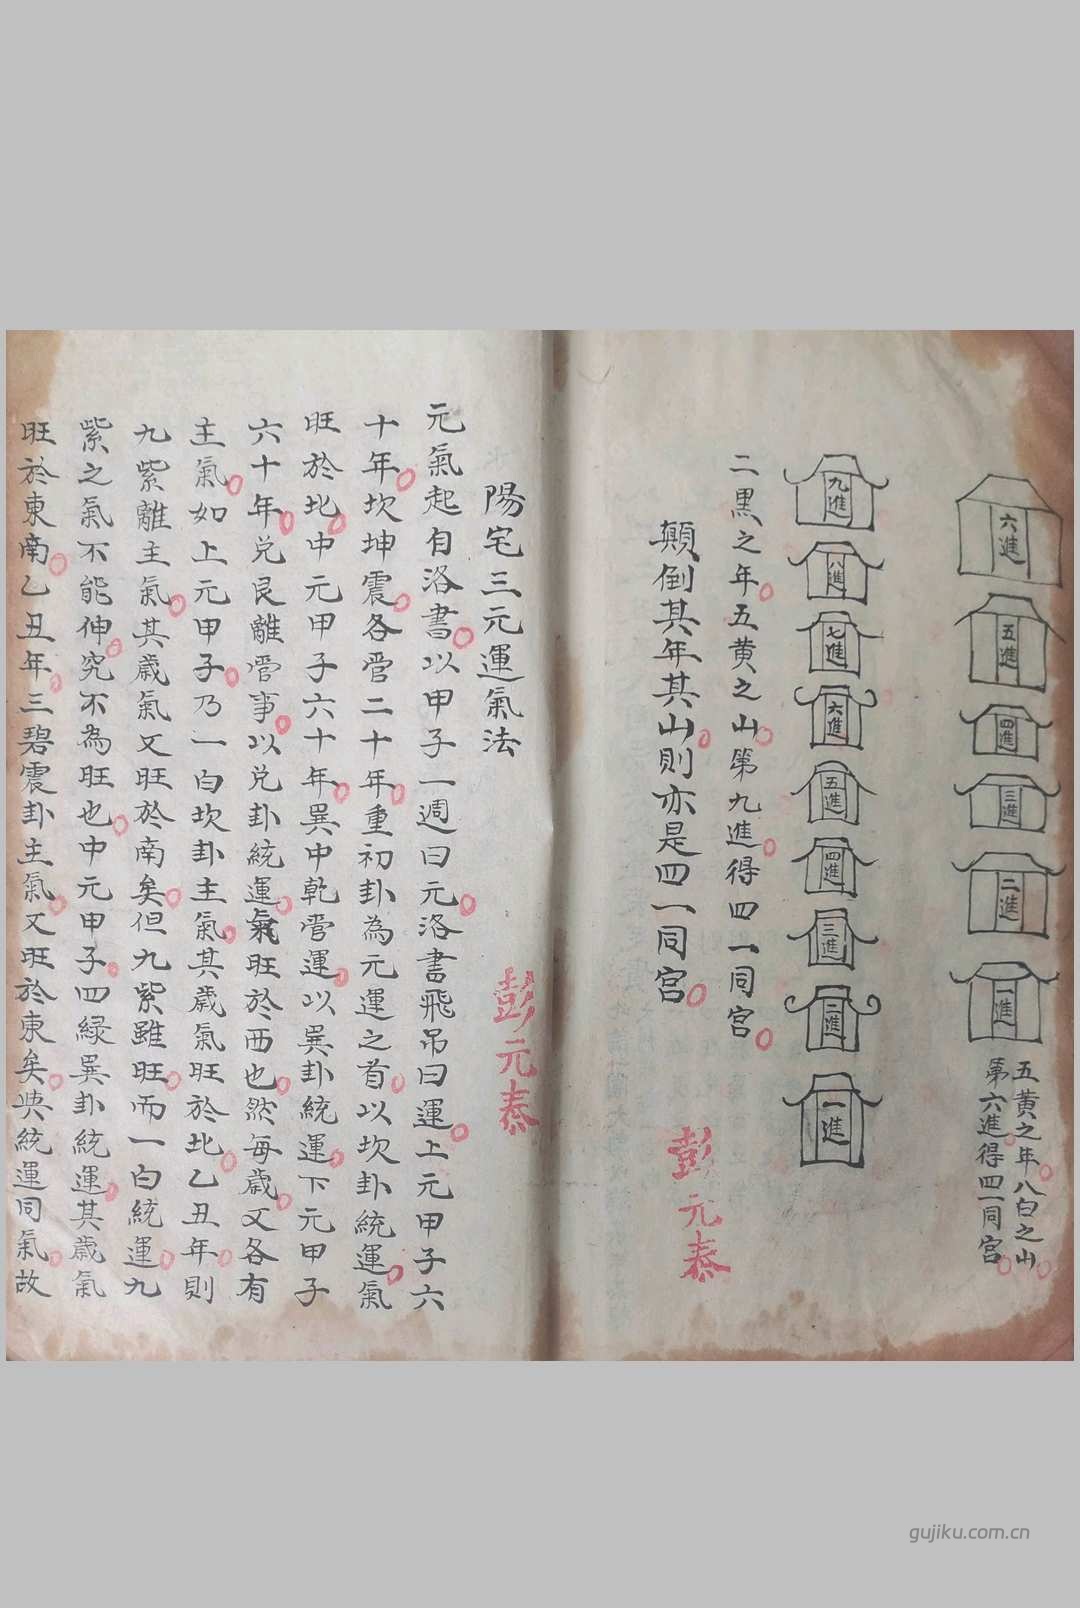 六進
五進
四進
三進
二進
一進
五黄之年八白之山
第六進得四一同宫
九進
八進
七進
六進
五進
四進
三進
二進
一進
二黑之年五黄之山第九進得四一同宫
顛倒其年其山則亦是四一同宫
彭元泰
陽宅三元運氣法
彭元泰
元氣起自洛書以甲子一週曰元洛書飛吊曰運上元甲子六
十年坎坤震各管二十年重初卦為元運之首以坎卦統運氣
旺於北中元甲子六十年巽中乾管運以巽卦統運下元甲子
六十年兑艮離管事以兑卦統運氣旺於西也然每歳又各有
主氣如上元甲子乃一白坎卦主氣其歳氣旺於北乙丑年則
九紫離主氣其歳氣又旺於南矣但九紫雖旺而一白統運九
紫之氣不能伸究不為旺也中元甲子四緑巽卦統運其歳氣
旺於東南乙丑年三碧震卦主氣又旺於東矣與統運同氣故
gujiku.com.cn